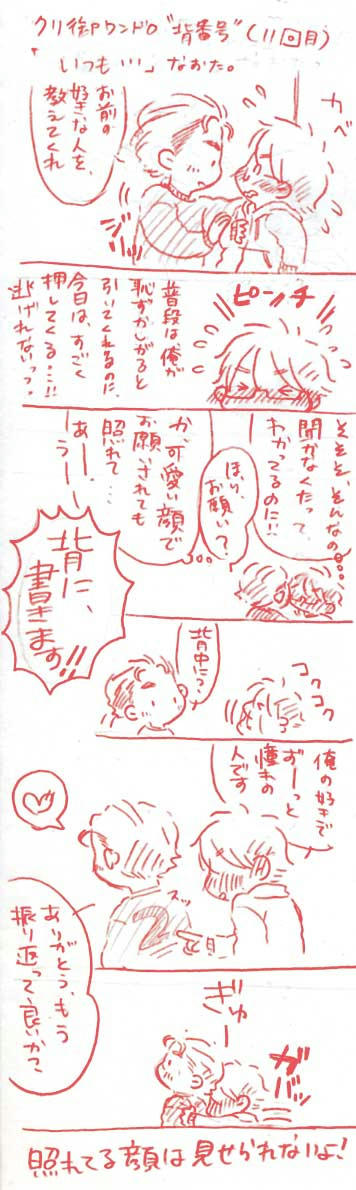 クリ御ワンドロ“背番号”(11回目)
「いつも…」なおかた。
カベ
お前の
好きな人を、
教えてくれ
ピーンチ
普段は俺が
恥ずかしがると
引いてくれるのに、
今日は、すごく
押してくる…!!
逃げれないっっ。
そそそ、そんなの…
聞かなくたって、
わかってるのに!!
ほら、
お願い?
か、可愛い顔で
お願されても
照れて…
あー、
うー
背に、
書きます!!
コクコク
背中に?
俺の好きで
ずーっと
憧れの
人です
スッ
ありがとう、もう
振り返って良いかっ?
ぎゅー
ガバッ
照れてる顔は見せられないよ!